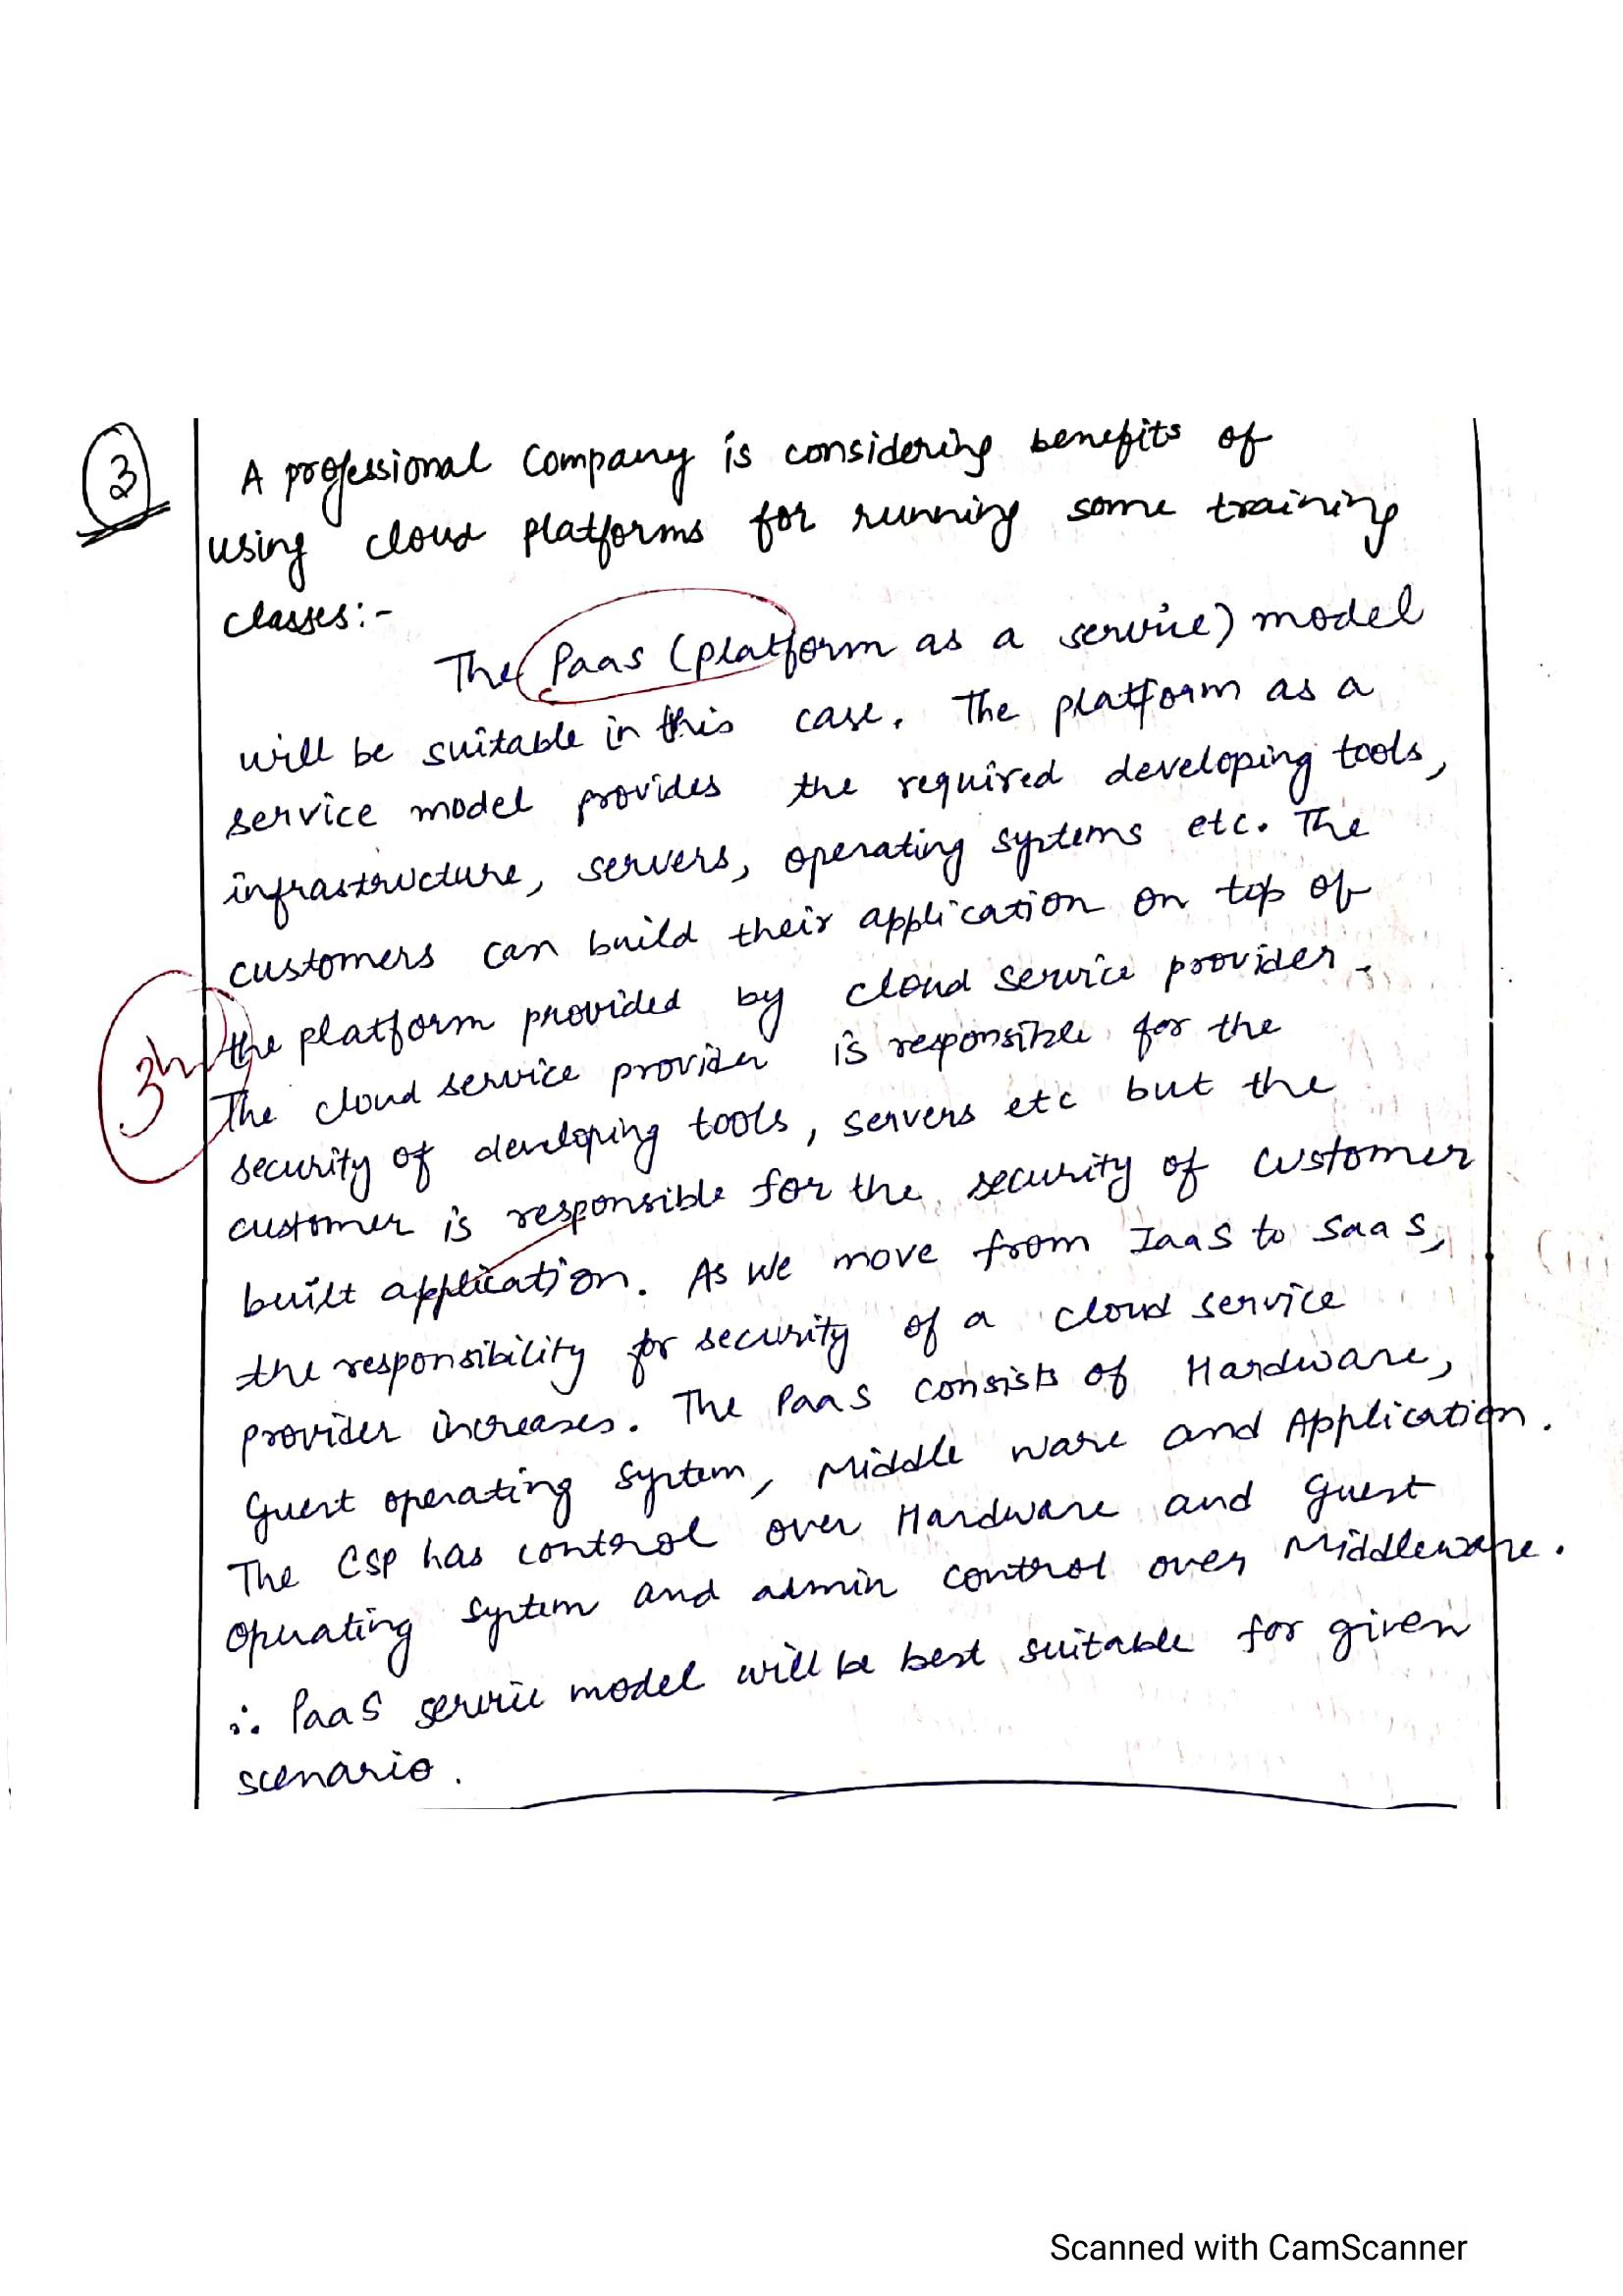 3
A professional Company is considering benefits of
using cloud platforms for running some training
classes:-
The Paas (platform as a service) model
will be suitable in this case. The platform as a
service model provides the required developing tools,
infrastructure, servers, operating systems etc. The
customers can build their application on top of
the platform provided by cloud service provider.
The cloud service provider is responsible for the
security of developing tools, servers etc but the
customer is responsible for the security of customer
built application. As we move from IaaS to SaaS,
the responsibility for security of a cloud service
provider increases. The PaaS consists of Hardware,
Guest operating system, Middle ware and Application.
The CSP has control over Hardware and Guest
operating system and admin control over Middleware.
∴ PaaS service model will be best suitable for given
scenario.
Scanned with CamScanner